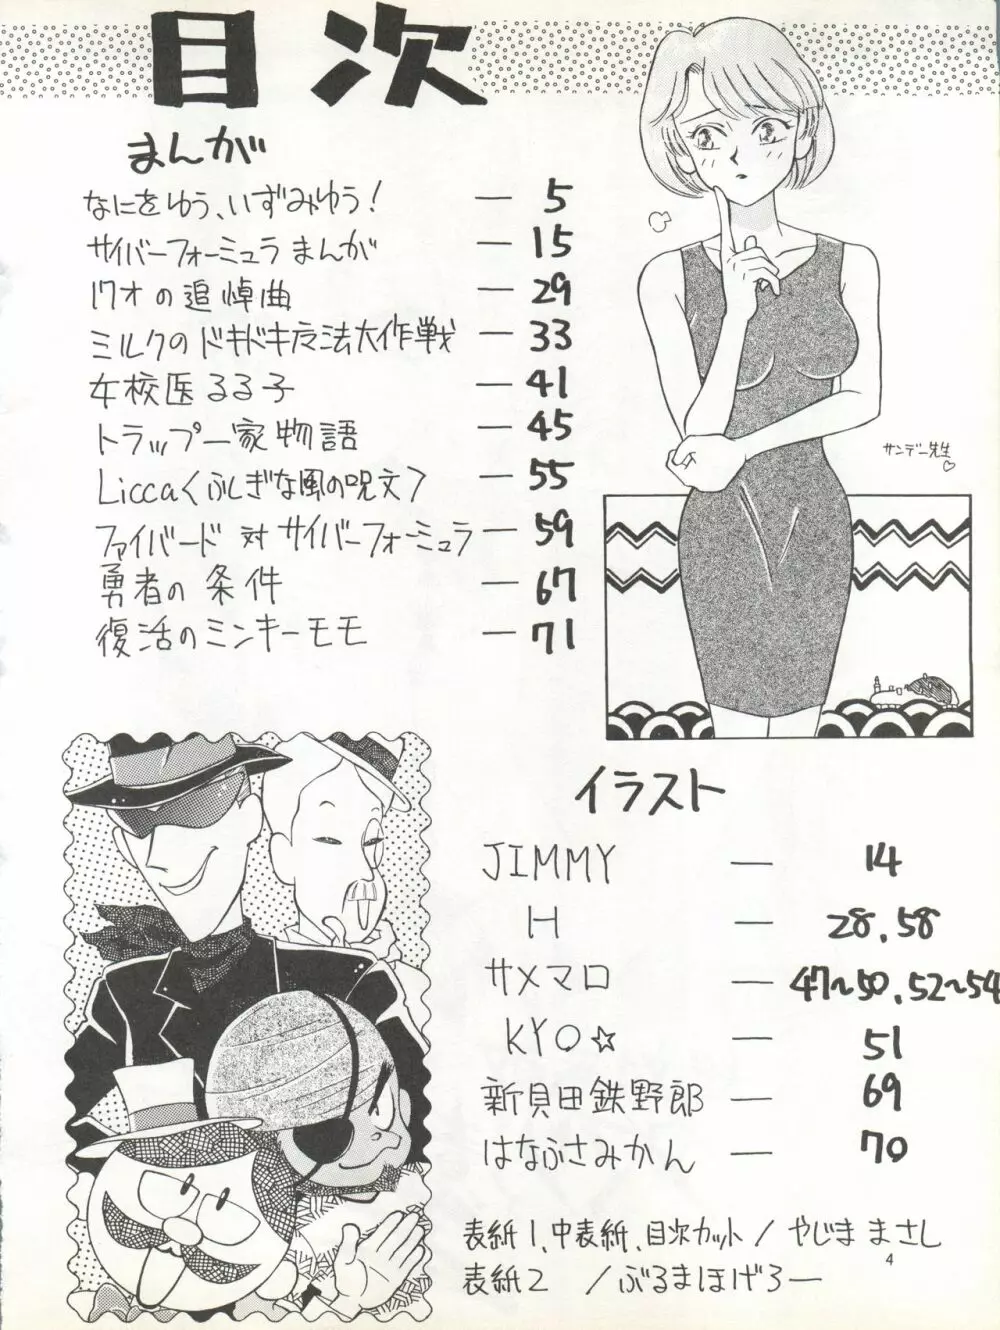 目次
まんが
なにをゆう、いずみゆう! — 5
サイバーフォーミュラ まんが — 15
ワオの追悼曲 — 29
ミルクのドキドキ魔法大作戦 — 33
女校医るる子 — 41
トラップ一家物語 — 45
Licca〈ふしぎな風の呪文〉 — 55
ファイバード 対 サイバーフォーミュラ — 59
勇者の 条件 — 67
復活のミンキーモモ — 71
サンデー先生♡
イラスト
JIMMY — 14
H — 28.58
サメマロ — 47〜50.52〜54
KYO☆ — 51
新貝田鉄野郎 — 69
はなふさみかん — 70
表紙1、中表紙、目次カット / やじま まさし
表紙2 / ぶるまほげろー
4